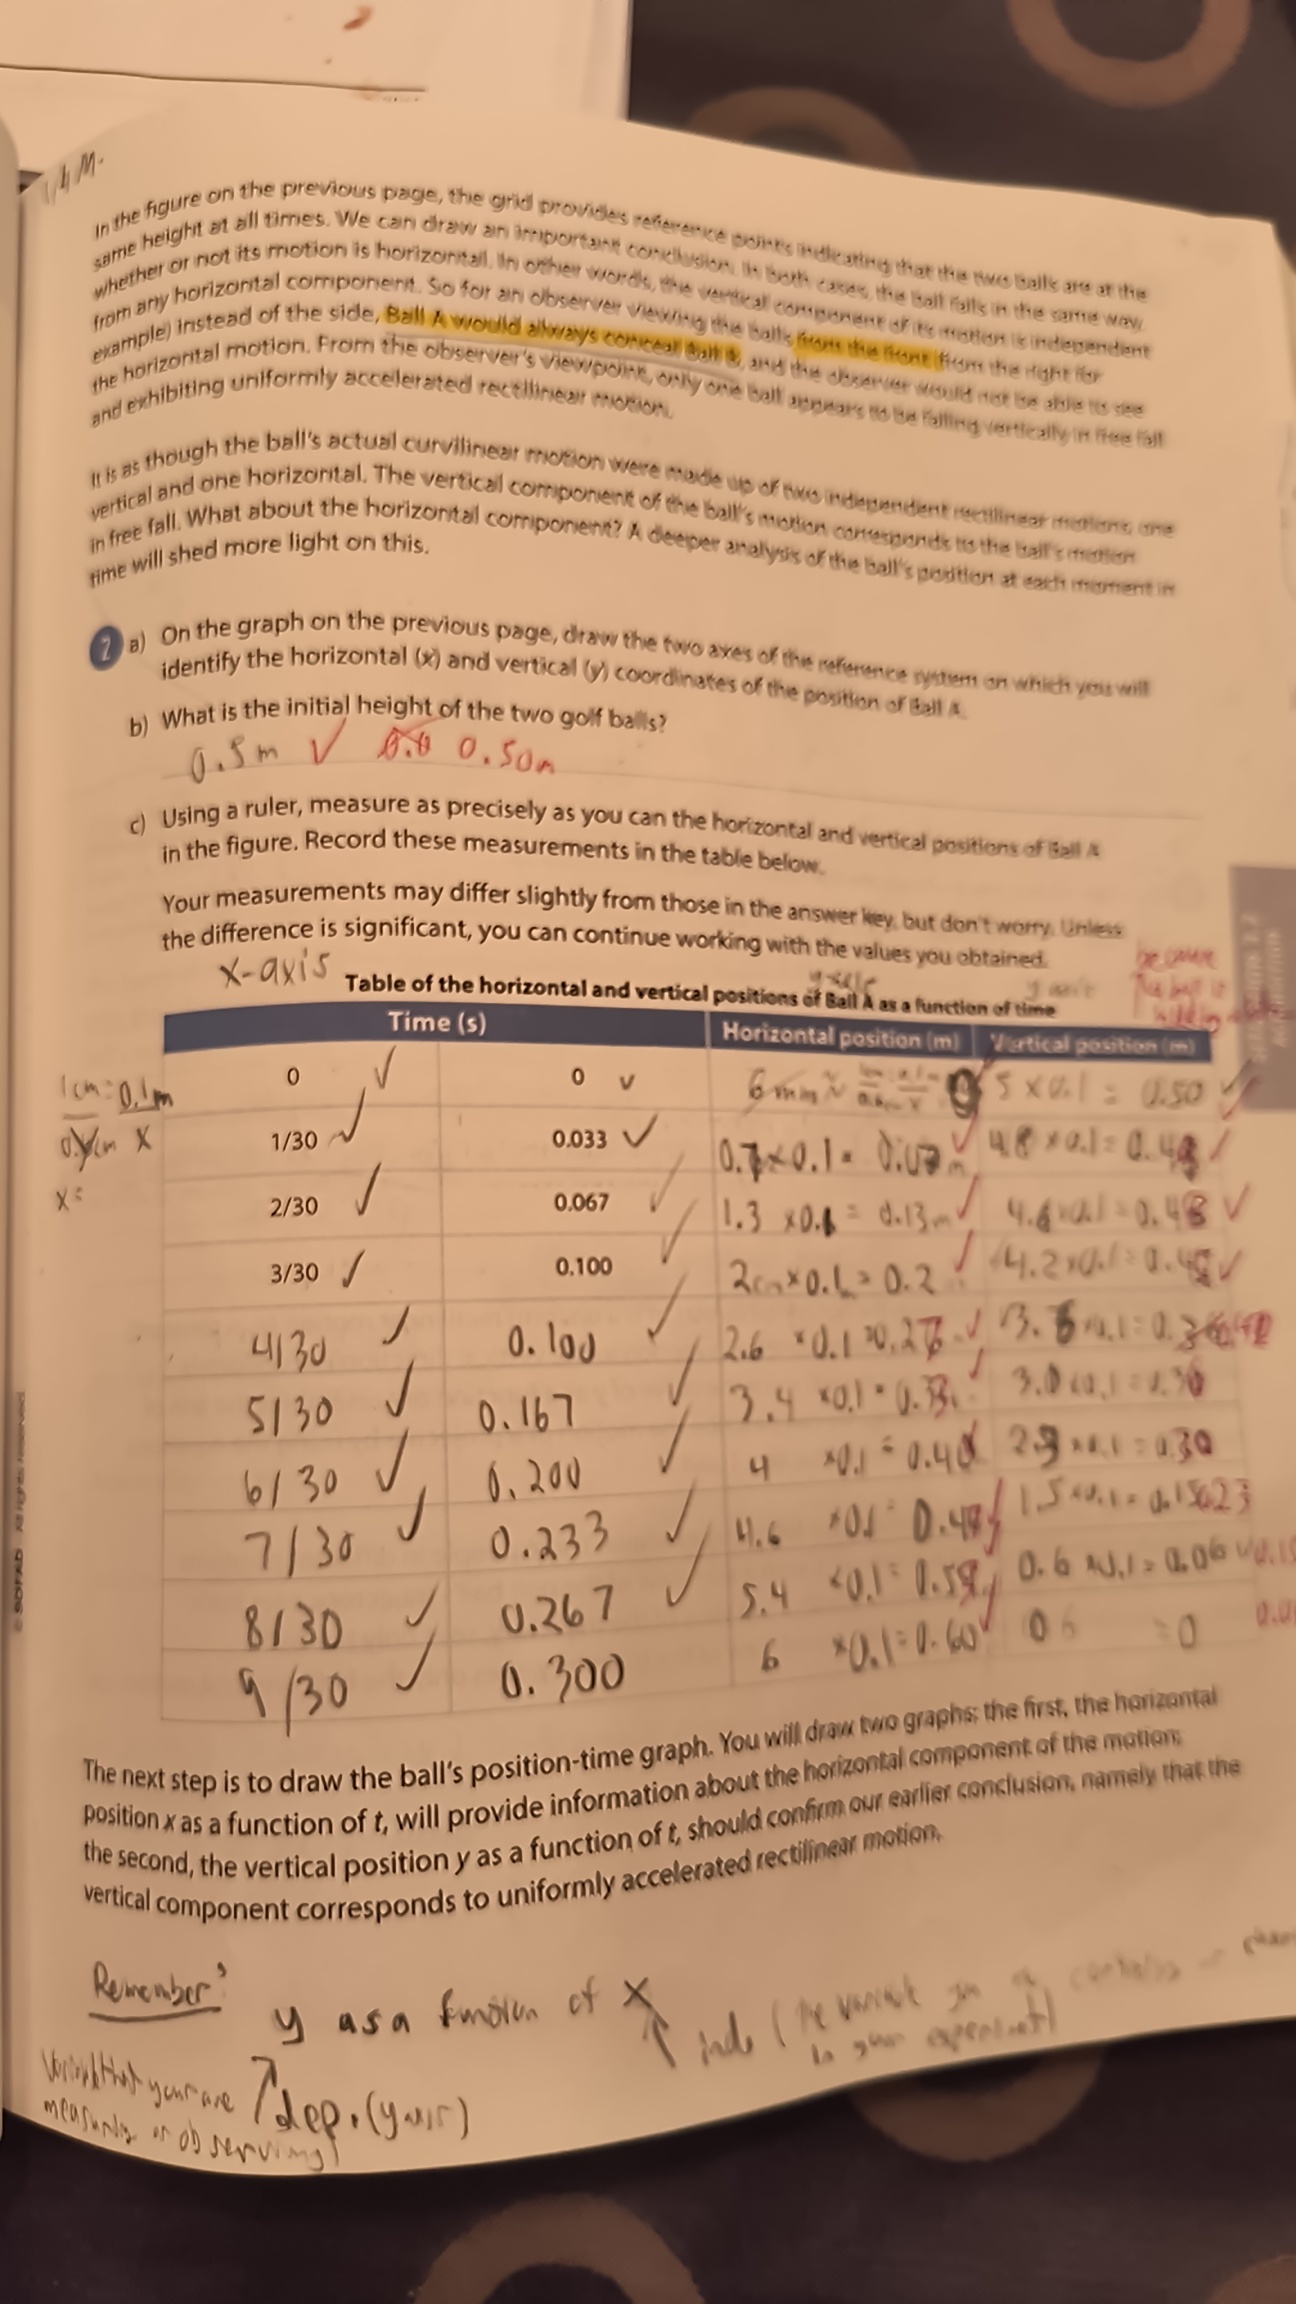 1/4 M.
In the figure on the previous page, the grid provides reference points indicating that the two balls are at the
same height at all times. We can draw an important conclusion. In both cases, the ball falls in the same way,
whether or not its motion is horizontal. In other words, the vertical component of its motion is independent
from any horizontal component. So for an observer viewing the balls from the front (from the right for
example) instead of the side, Ball A would always conceal Ball B, and the observer would not be able to see
the horizontal motion. From the observer's viewpoint, only one ball appears to be falling vertically in free fall
and exhibiting uniformly accelerated rectilinear motion.
It is as though the ball's actual curvilinear motion were made up of two independent rectilinear motions, one
vertical and one horizontal. The vertical component of the ball's motion corresponds to the ball's motion
in free fall. What about the horizontal component? A deeper analysis of the ball's position at each moment in
time will shed more light on this.
a) On the graph on the previous page, draw the two axes of the reference system on which you will
identify the horizontal (x) and vertical (y) coordinates of the position of Ball A.
b) What is the initial height of the two golf balls?
0.5m ✓ 0.50m
c) Using a ruler, measure as precisely as you can the horizontal and vertical positions of Ball A
in the figure. Record these measurements in the table below.
Your measurements may differ slightly from those in the answer key, but don't worry. Unless
the difference is significant, you can continue working with the values you obtained.
because
x-axis
Table of the horizontal and vertical positions of Ball A as a function of time
Time (s) Horizontal position (m) Vertical position (m)
0 ✓ 0 ✓ 6 mm 5 x 0.1 = 0.50 ✓
1cm = 0.1m
x
x =
1/30 ✓ 0.033 ✓ 0.7 x 0.1 = 0.07 ✓ 4.8 x 0.1 = ✓
2/30 ✓ 0.067 ✓ 1.3 x 0.1 = 0.13m ✓ ✓
3/30 ✓ 0.100 ✓ 2cm x 0.1 = 0.2 ✓ 4.2 x 0.1 = ✓
4/30 ✓ 0.100 ✓ 2.6 x 0.1 ✓
5/30 ✓ 0.167 ✓ 3.4 x 0.1 = ✓ 3.0 x 0.1 = 0.30
6/30 ✓ 0.200 ✓ 4 x 0.1 = 0.40 x 0.1 = 0.30
7/30 ✓ 0.233 ✓ 4.6 x 0.1 = ✓ 1.5 x 0.1 =
8/30 ✓ 0.267 ✓ 5.4 x 0.1 = ✓ 0.6 x 0.1 = 0.06
9/30 ✓ 0.300 6 x 0.1 = 0.60 ✓ = 0
The next step is to draw the ball's position-time graph. You will draw two graphs: the first, the horizontal
position x as a function of t, will provide information about the horizontal component of the motion;
the second, the vertical position y as a function of t, should confirm our earlier conclusion, namely that the
vertical component corresponds to uniformly accelerated rectilinear motion.
© SOFAD All rights reserved
Remember:
y as a function of x
inde (the variable
in your experiment)
dep.
that your are
measuring or observing)